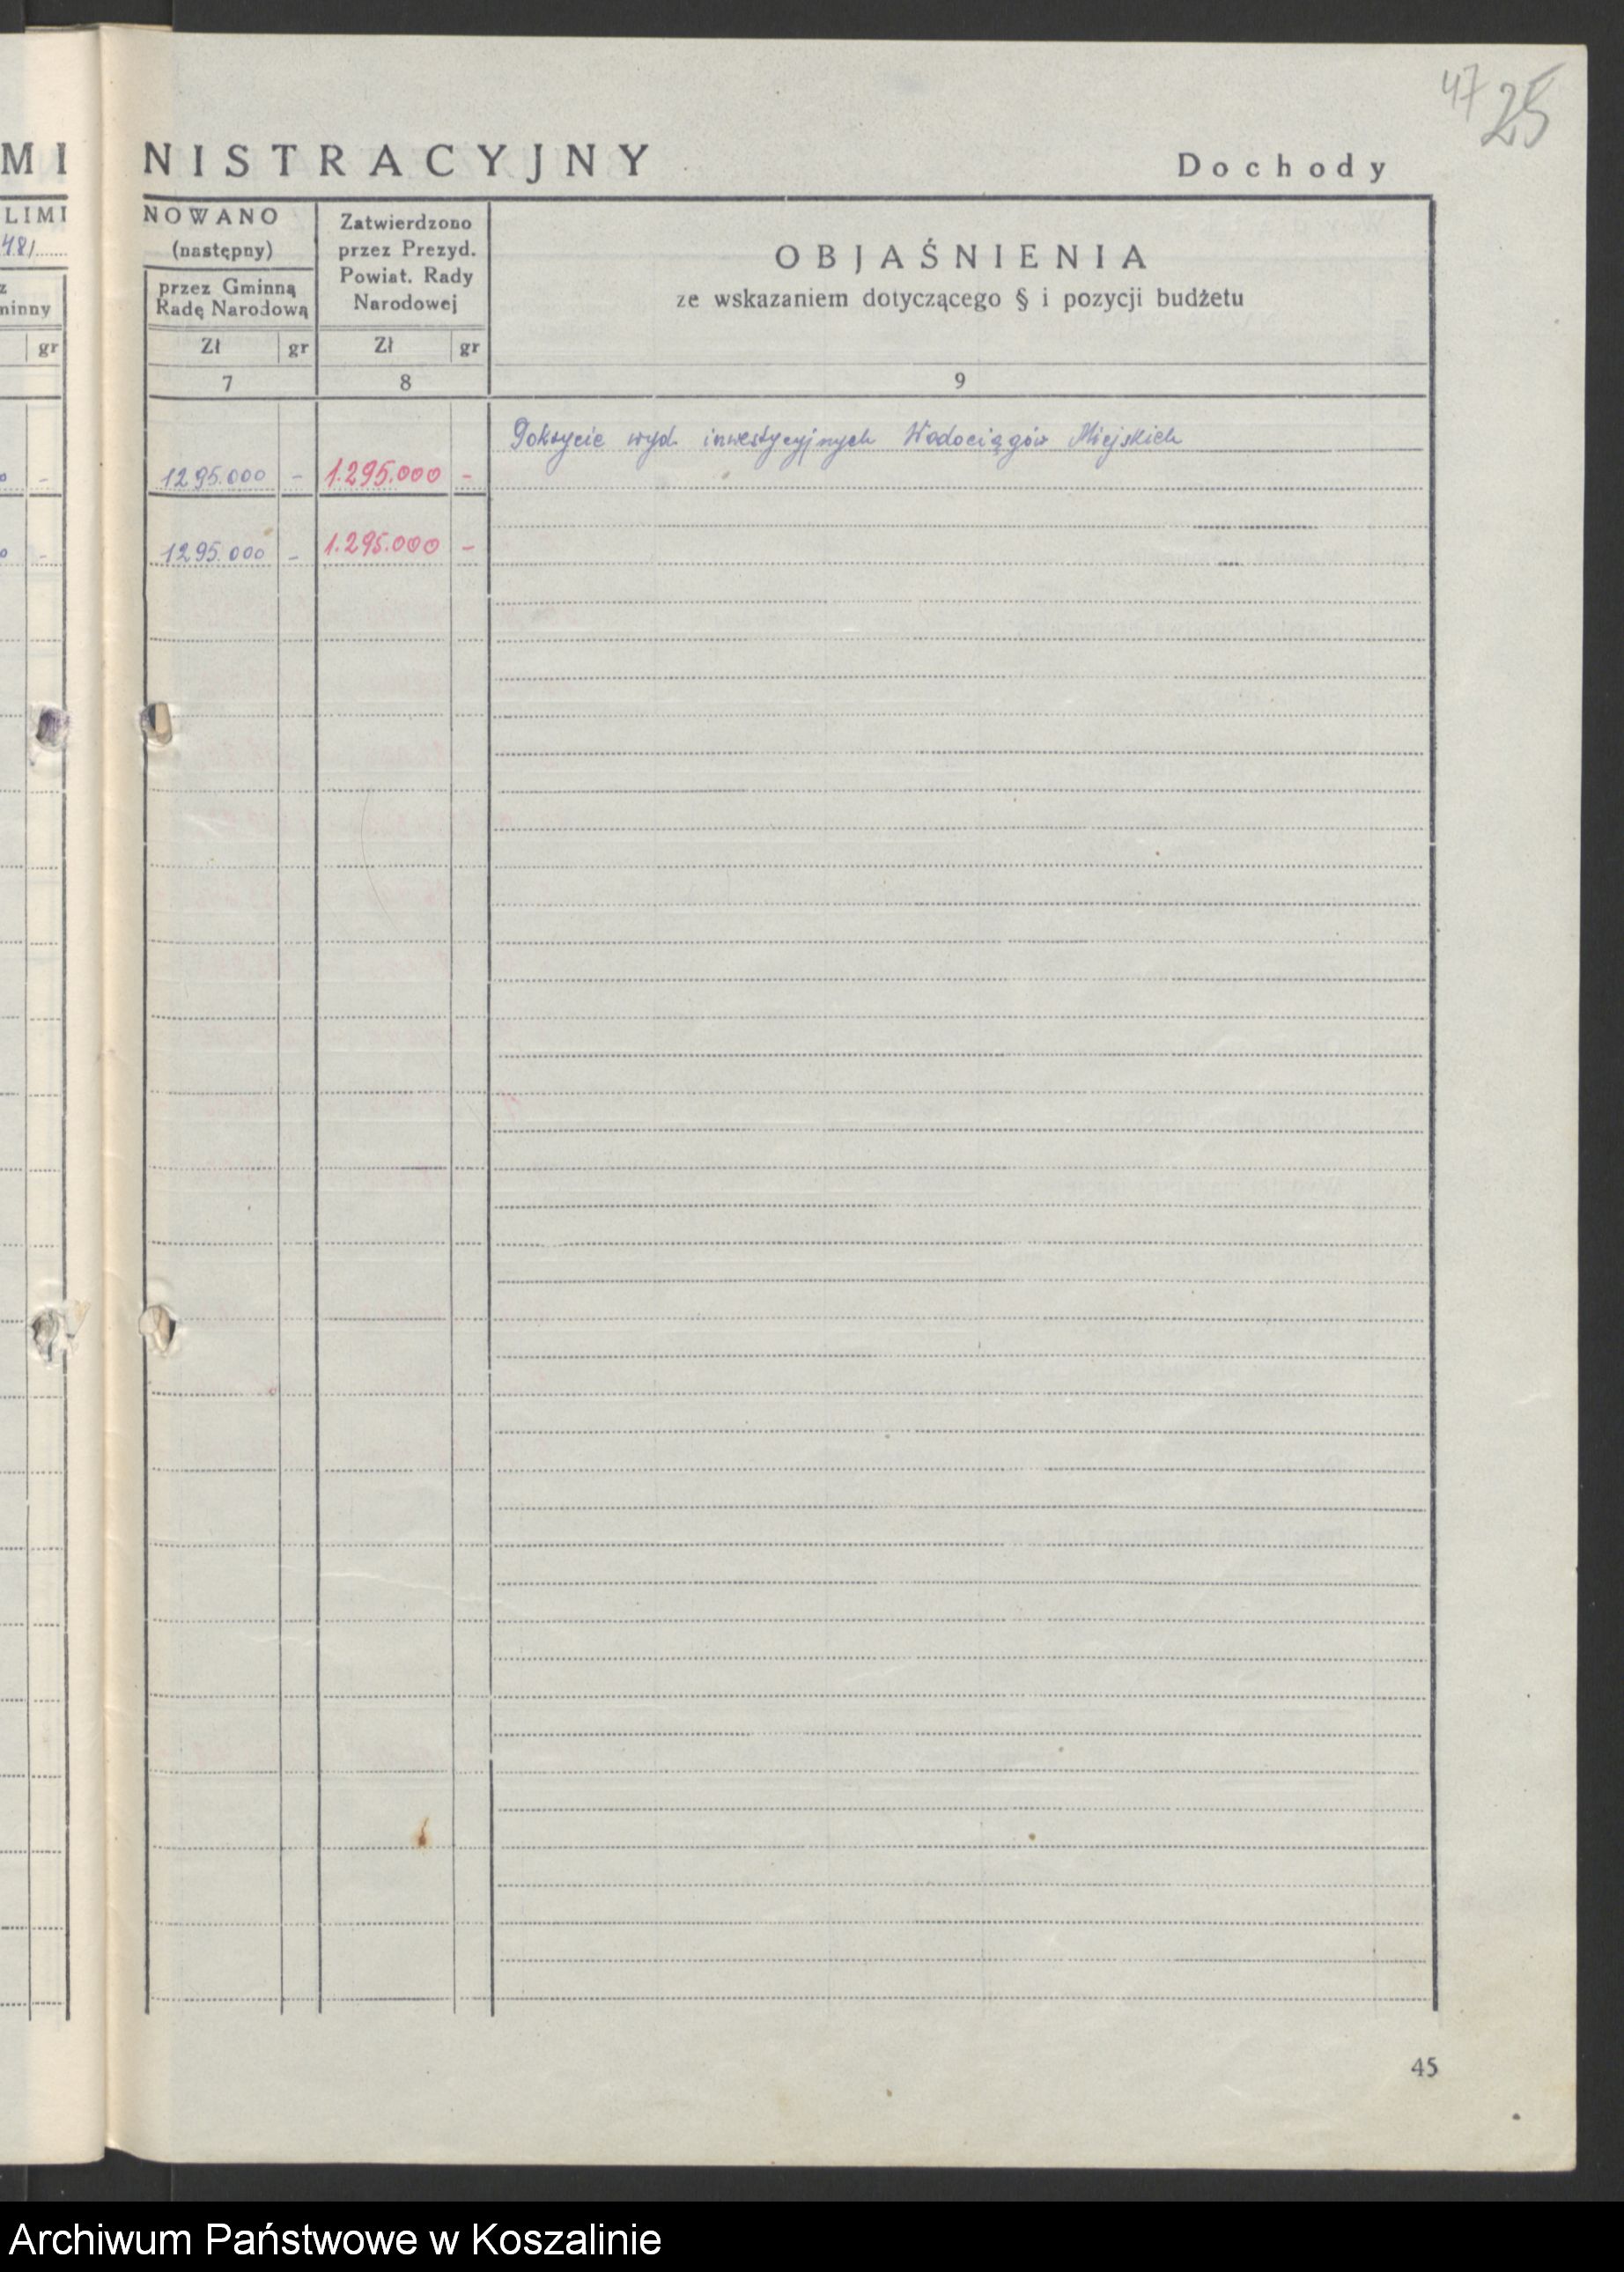 47 25
MI NISTRACYJNY Dochody
LIMI NOWANO
48/ (następny)
z
minny
gr
przez Gminną
Radę Narodową
Zł gr
7
Zatwierdzono
przez Prezyd.
Powiat. Rady
Narodowej
Zł gr
8
OBJAŚNIENIA
ze wskazaniem dotyczącego § i pozycji budżetu
9
Pokrycie wyd. inwestycyjnych Wodociągów Miejskich
0 - 1295.000 - 1.295.000 -
0 - 1295.000 - 1.295.000 -
45
Archiwum Państwowe w Koszalinie